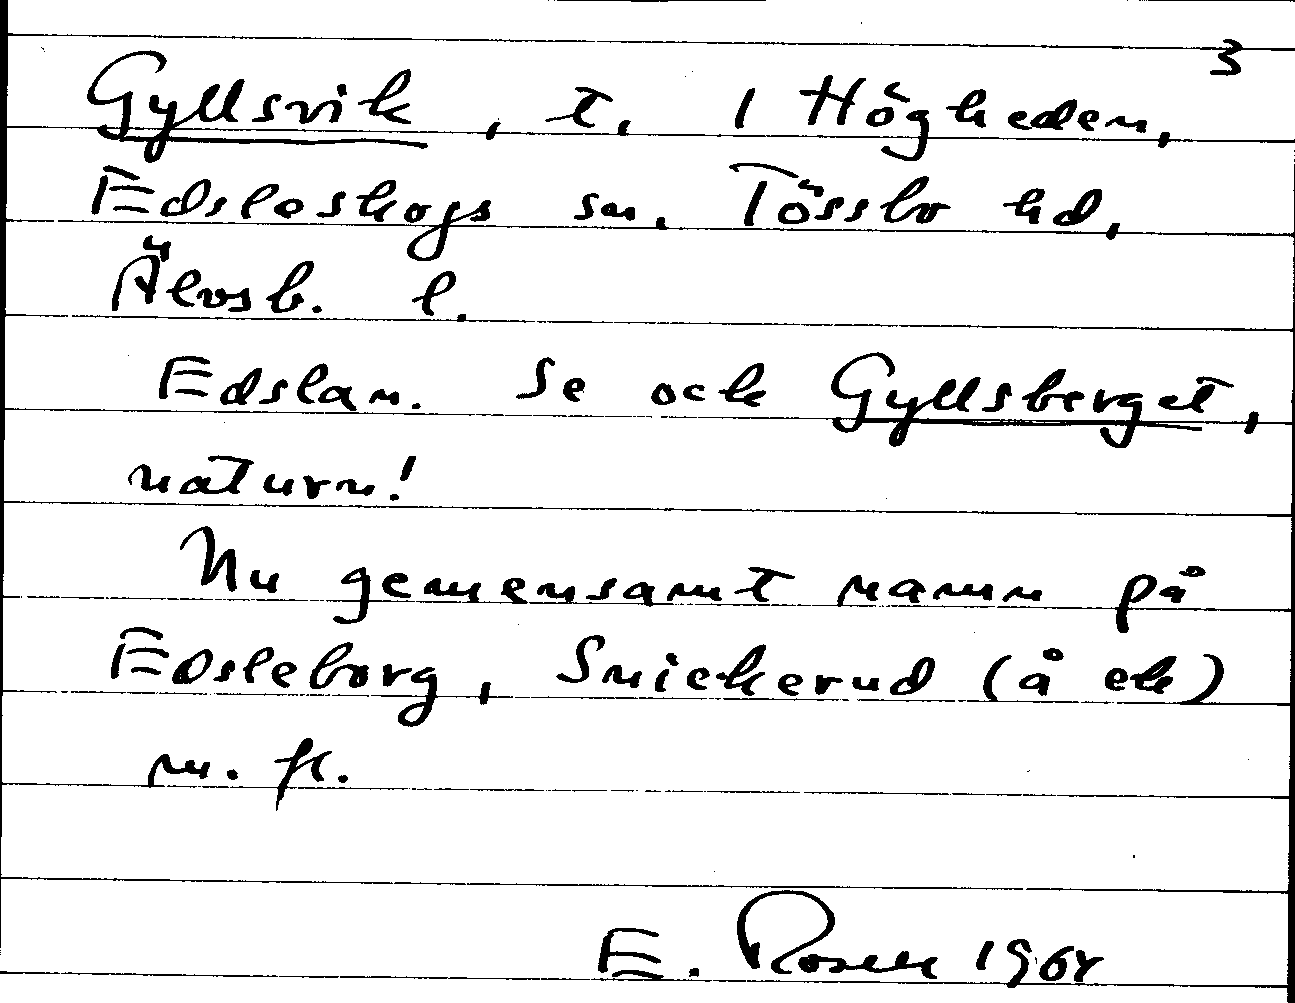 3
Gyllsvik, t. 1 Högheden,
Edsleskogs sn. Tössbo hd,
Älvsb. l.
Edslan. Se och Gyllsberget,
naturn!
Nu gemensamt namn på
Edsleborg, Snickerud (å ek)
m. fl.
E. Rosell